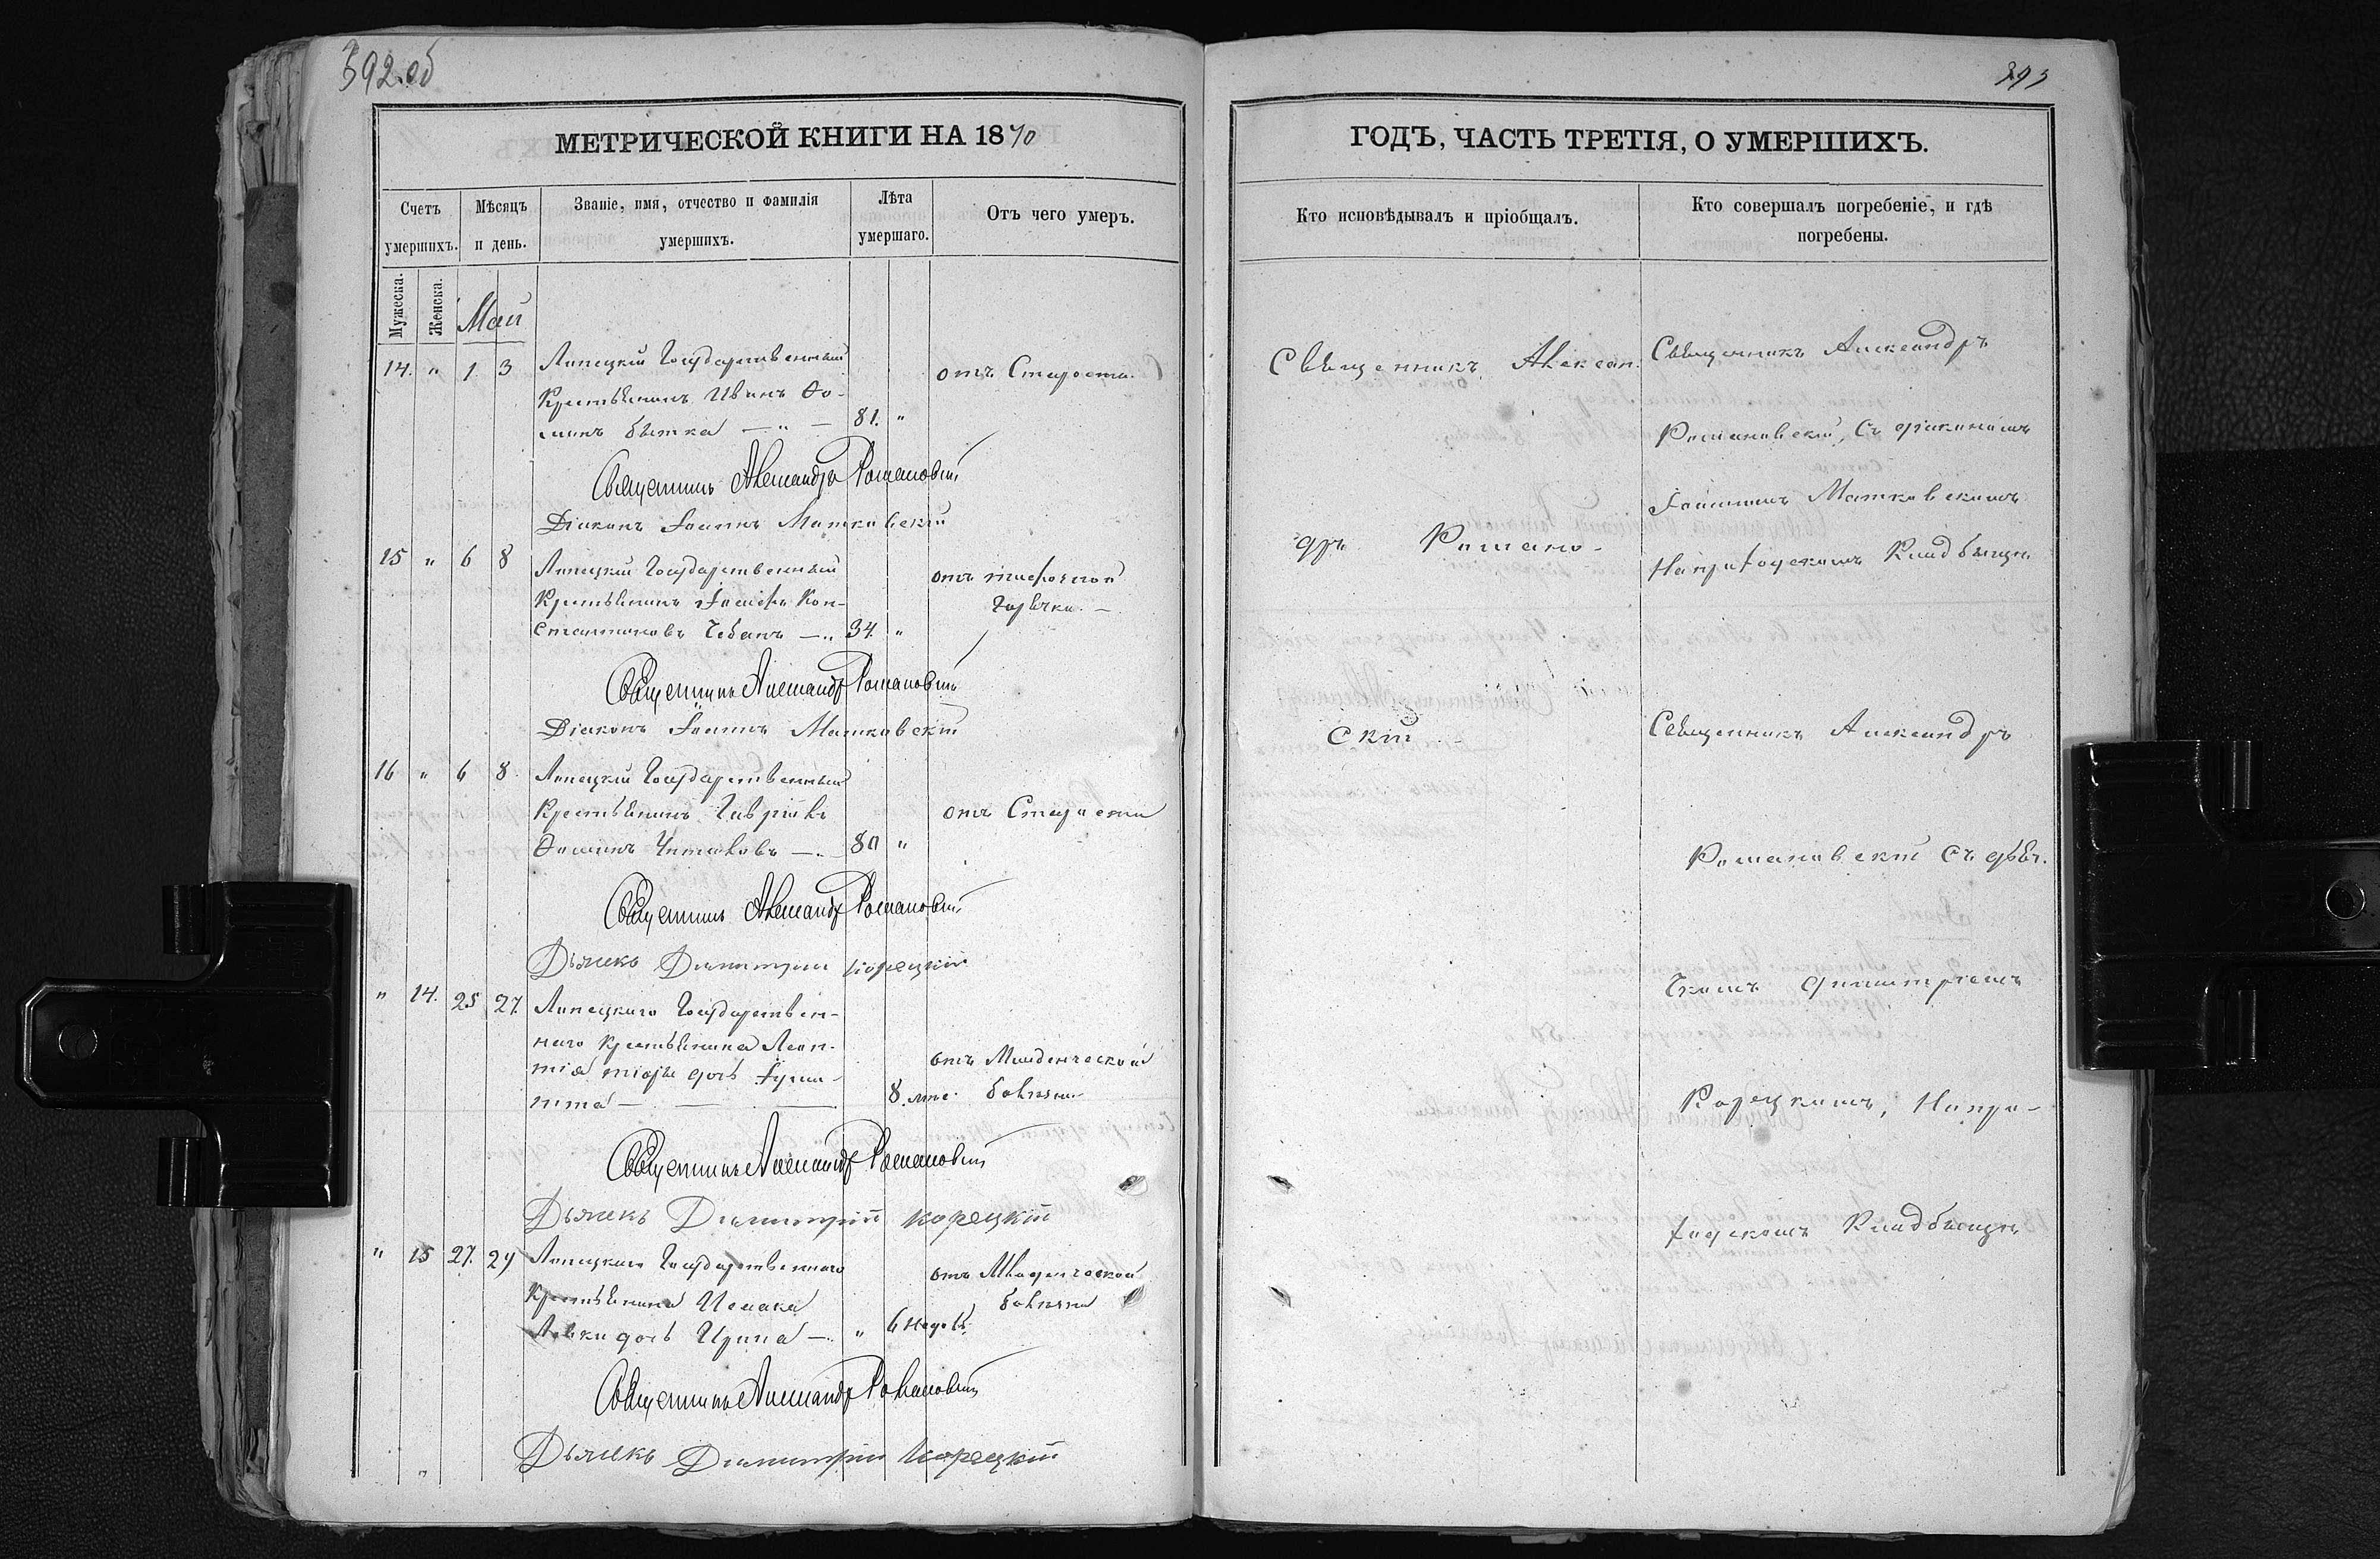 592 об
МЕТРИЧЕСКОЙ КНИГИ НА 1870
Счетъ умершихъ.
Мѣсяцъ и день.
Званіе, имя, отчество и фамилія умершихъ.
Лѣта умершаго.
Отъ чего умеръ.
Мужеска.
Женска.
Май
14. " 1 3 Липецкій Государственный
Крестьянинъ Иванъ Ѳо-
минъ Бытка — " — 81. "
отъ Старости.
Священникъ Александръ Романовскій
Діаконъ Іоаннъ Матковскій
15 " 6 8 Липецкій Государственный
Крестьянинъ Іосифъ Кон-
стантиновъ Чебанъ — " 34. "
отъ тифозной
горячки. —
Священникъ Александръ Романовскій
Діаконъ Іоаннъ Матковскій
16 " 6 8 Липецкій Государственный
Крестьянинъ Гавріилъ
Ѳоминъ — 80 "
отъ Старости
Священникъ Александръ Романовскій
Дьячекъ Димитрій Корецкій
" 14. 25 27. Липецкаго Государствен-
наго Крестьянина Леон-
тія дочь
8. мѣс.
отъ Младенческой
болѣзни
Священникъ Александръ Романовскій
Дьячекъ Димитрій Корецкій
" 15 27. 29 Липецкаго Государственнаго
Крестьянина Исаака
дочь Ирина — " 6 недѣль
отъ Младенческой
болѣзни
Священникъ Александръ Романовскій
Дьячекъ Димитрій Корецкій
"
ГОДЪ, ЧАСТЬ ТРЕТІЯ, О УМЕРШИХЪ.
Кто исповѣдывалъ и пріобщалъ.
Кто совершалъ погребеніе, и гдѣ
погребены.
Священникъ Алексан-
дръ Романо-
скій
Священникъ Александръ
Романовскій, съ діакономъ
Іоанномъ Матковскимъ
На приходскомъ Кладбищѣ
Священникъ Александръ
Романовскій съ дьяч-
комъ Димитріемъ
Корецкимъ, На при-
ходскомъ Кладбищѣ